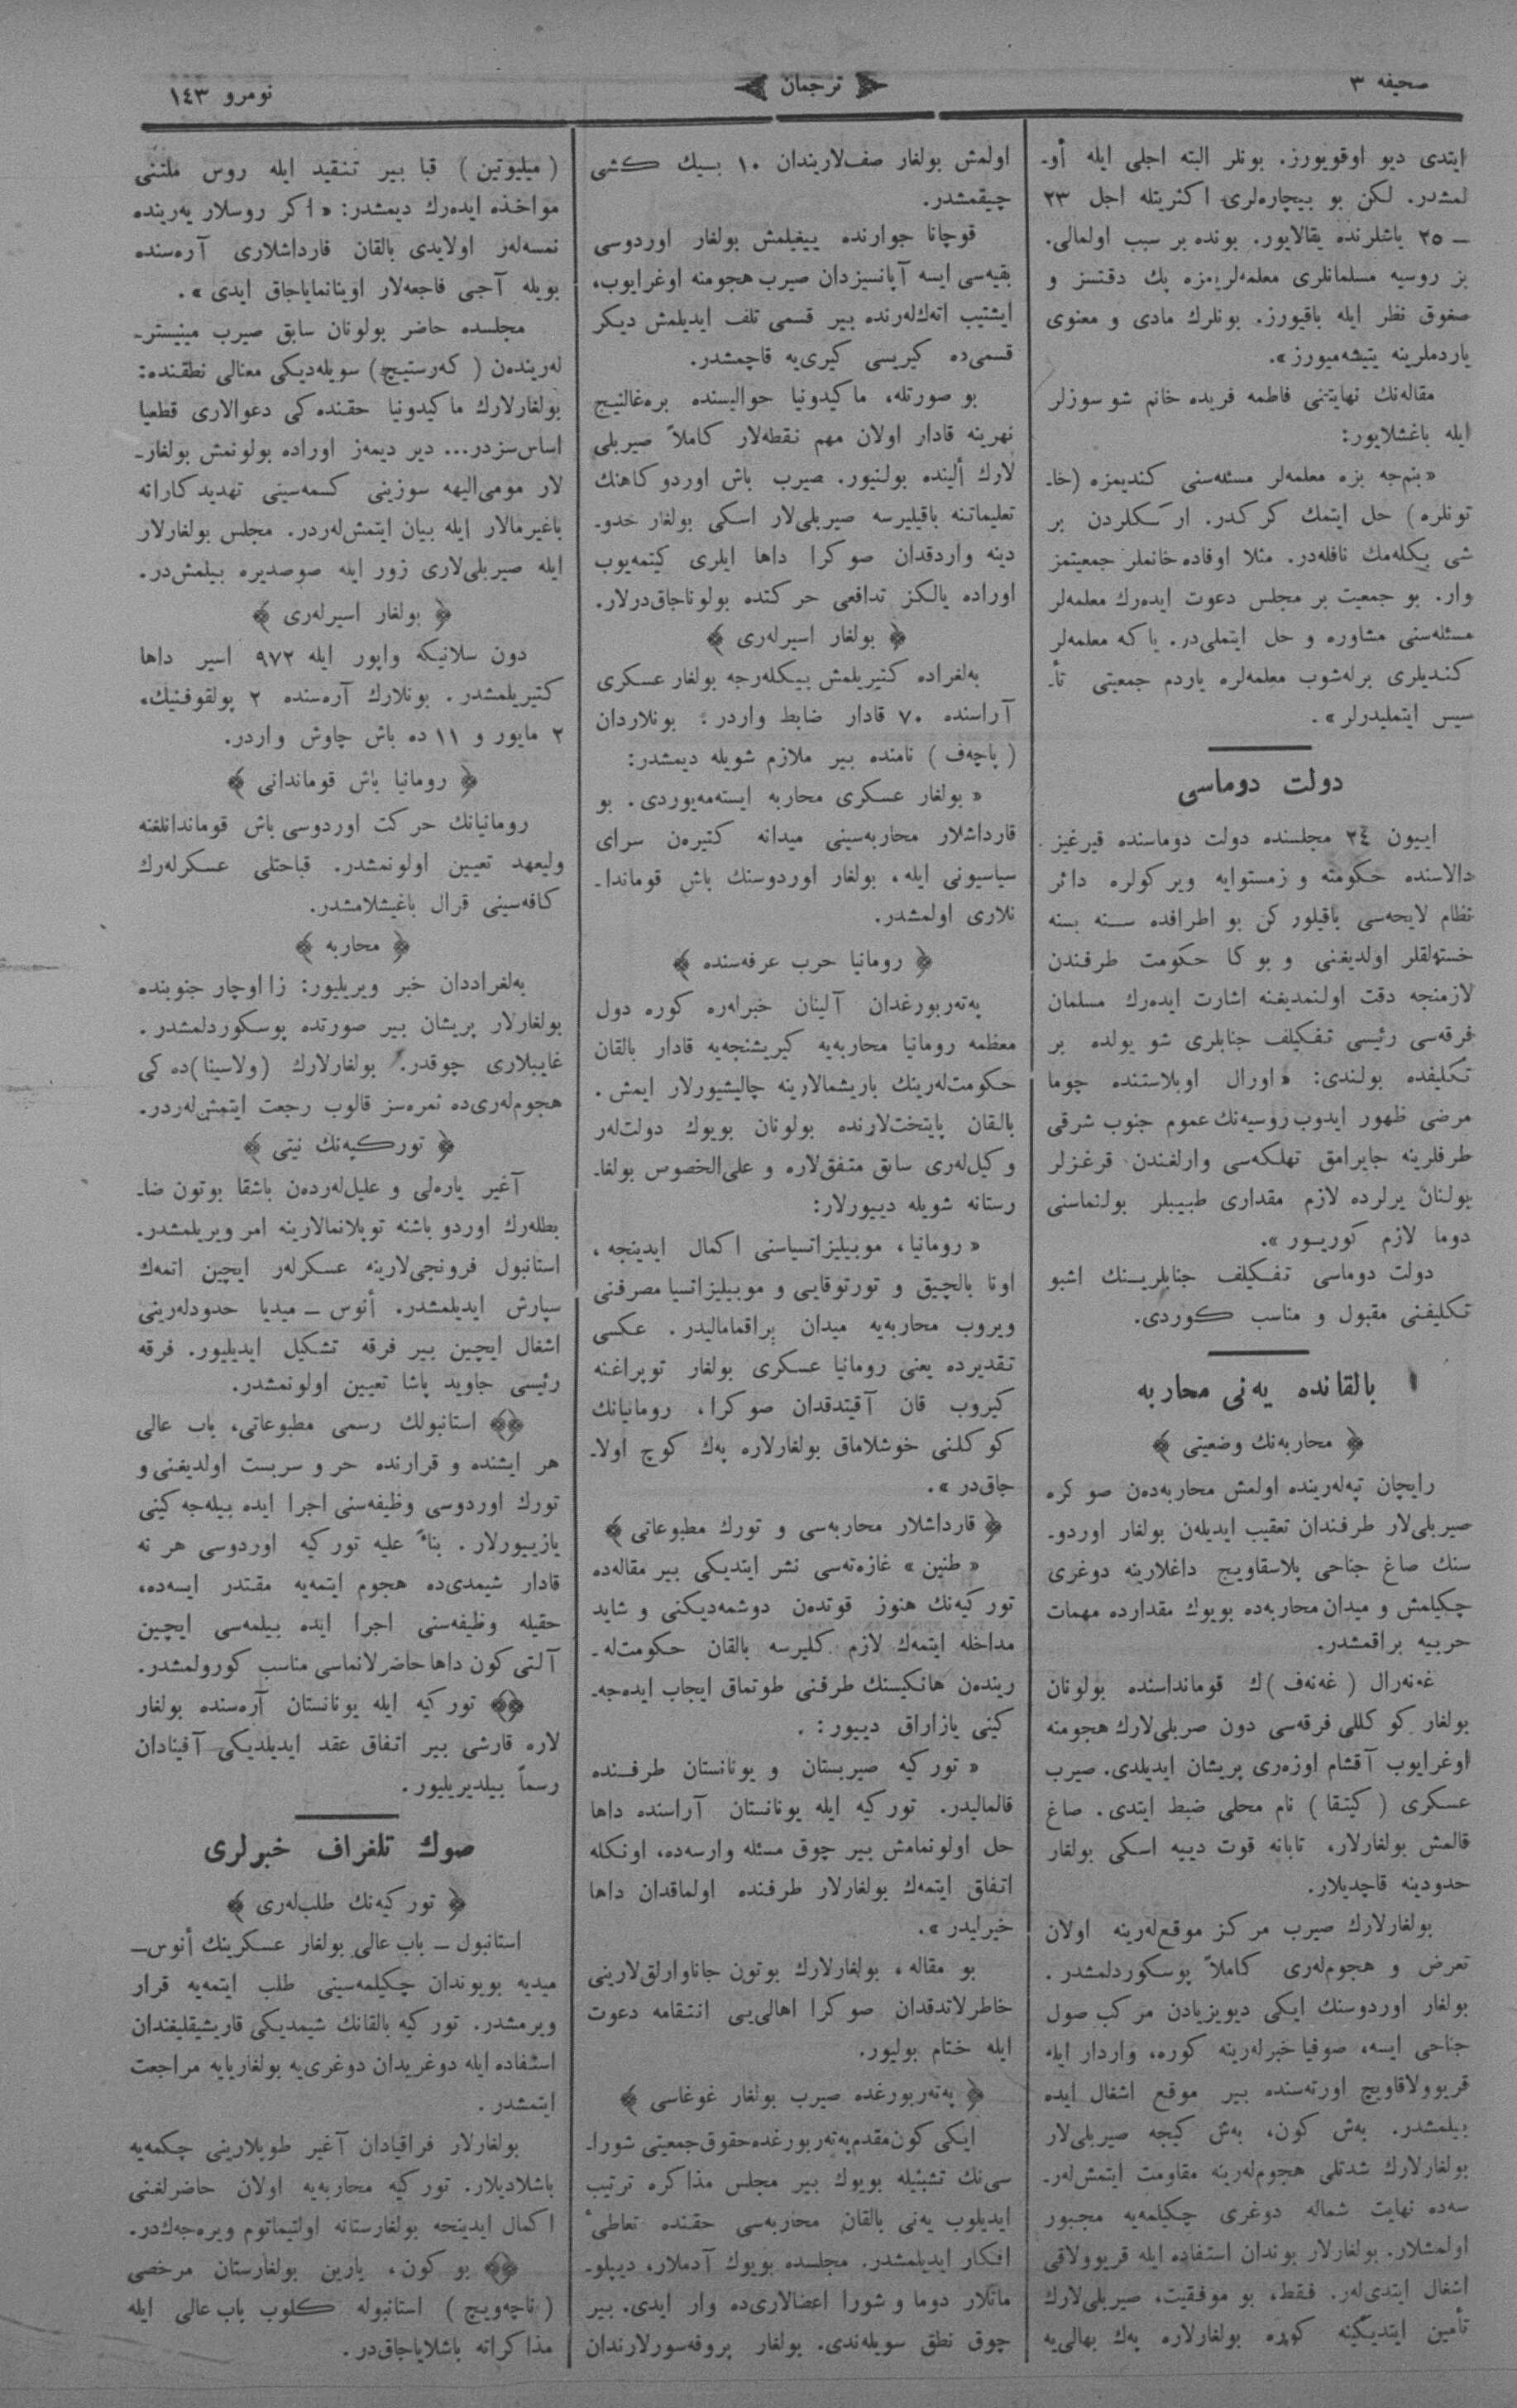 صحیفه ۳
ترجمان
نومرو ١٤٣
ایتدی دیو اوقویورز. بونلر البته اجلی ایله أو-
لمشدر. لکن بو بیچاره‌لری اکثریتله اجل ٢٣
— ٢٥ یاشلرنده یقالایور. بونده بر سبب اولمالی.
بز روسیه مسلمانلری معلمه‌لریمزه پك دقتسز و
صغوق نظر ایله باقیورز. بونلرك مادی و معنوی
یاردملرینه یتیشه‌میورز».
مقاله‌نك نهایتنی فاطمه فریده خانم شو سوزلر
ایله باغشلایور:
«بنم‌جه بزه معلمه‌لر مسئله‌سنی کندیمزه (خا-
تونلره) حل ایتمك کرکدر. ارککلردن بر
شی بکله‌مك نافله‌در. مثلا اوفاده خانملر جمعیتمز
وار. بو جمعیت بر مجلس دعوت ایده‌رك معلمه‌لر
مسئله‌سنی مشاوره و حل ایتملی‌در. یا که معلمه‌لر
کندیلری برله‌شوب معلمه‌لره یاردم جمعیتی تأ-
سیس ایتملیدرلر».
دولت دوماسی
اییون ٢٤ مجلسنده دولت دوماسنده قیرغیز
دالاسنده حکومته و زمستوایه ویرکولره دائر
نظام لایحه‌سی باقیلورکن بو اطرافده سنه بسنه
خسته‌لقلر اولدیغنی و بوکا حکومت طرفندن
لازمنجه دقت اولنمدیغنه اشارت ایده‌رك مسلمان
فرقه‌سی رئیسی تفکیلف جنابلری شو یولده بر
تکلیفده بولندی: «اورال اوبلاستنده چوما
مرضی ظهور ایدوب روسیه‌نك عموم جنوب شرقی
طرفلرینه جایرامق تهلکه‌سی وارلغندن قرغزلر
بولنان یرلرده لازم مقداری طبیبلر بولنماسنی
دوما لازم کوریور».
دولت دوماسی تفکیلف جنابلرینك اشبو
تکلیفنی مقبول و مناسب کوردی.
بالقانده یه‌نی محاربه
﴿ محاربه‌نك وضعیتی ﴾
رایچان تپه‌له‌رینده اولمش محاربه‌ده‌ن صوکره
صیربلی‌لار طرفندان تعقیب ایدیله‌ن بولغار اوردو-
سنك صاغ جناحی پلاسقاویچ داغلارینه دوغری
چکیلمش و میدان محاربه‌ده بویوك مقدارده مهمات
حربیه براقمشدر.
غه‌نه‌رال (غه‌نه‌ف)ك قومانداسنده بولونان
بولغار کوکللی فرقه‌سی دون صربلی‌لارك هجومنه
اوغرایوب آقشام اوزه‌ری پریشان ایدیلدی. صیرب
عسکری (کیتقا) نام محلی ضبط ایتدی. صاغ
قالمش بولغارلار، تابانه قوت دییه اسکی بولغار
حدودینه قاچدیلار.
بولغارلارك صیرب مرکز موقع‌له‌رینه اولان
تعرض و هجوم‌له‌ری کاملاً پوسکوردلمشدر.
بولغار اوردوسنك ایکی دیویزیادن مرکب صول
جناحی ایسه، صوفیا خبرله‌رینه کوره، واردار ایله
قریوولاقاویچ اورته‌سنده بیر موقع اشغال ایده
بیلمشدر. به‌ش کون، به‌ش کیجه صیربلی‌لار
بولغارلارك شدتلی هجوم‌له‌رینه مقاومت ایتمش‌له‌ر-
سه‌ده نهایت شماله دوغری چکیلمه‌یه مجبور
اولمشلار. بولغارلار بوندان استفاده ایله قریوولاقی
اشغال ایتدی‌له‌ر. فقط، بو موفقیت، صیربلی‌لارك
تأمین ایتدیکینه کوره بولغارلاره په‌ك بهالی‌یه
اولمش بولغار صف‌لاریندان ١٠ بیك کشی
چیقمشدر.
قوچانا جوارنده ییغیلمش بولغار اوردوسی
بقیه‌سی ایسه آپانسیزدان صیرب هجومنه اوغرایوب،
ایشتیب اته‌ك‌له‌رنده بیر قسمی تلف ایدیلمش دیکر
قسمی‌ده کیریسی کیری‌یه قاچمشدر.
بو صورتله، ماکیدونیا حوالیسنده بره‌غالنیچ
نهرینه قادار اولان مهم نقطه‌لار کاملاً صیربلی
لارك ألینده بولنیور. صیرب باش اوردوکاهنك
تعلیماتنه باقیلیرسه صیربلی‌لار اسکی بولغار حدو-
دینه واردقدان صوکرا داها ایلری کیتمه‌یوب
اوراده یالکز تدافعی حرکتده بولوناجاق‌درلار.
﴿ بولغار اسیرله‌ری ﴾
به‌لغراده کتیریلمش بیکله‌رجه بولغار عسکری
آراسنده ٧٠ قادار ضابط واردر: بونلاردان
(پاچه‌ف) نامنده بیر ملازم شویله دیمشدر:
«بولغار عسکری محاربه ایسته‌مه‌یوردی. بو
قارداشلار محاربه‌سینی میدانه کتیره‌ن سرای
سیاسیونی ایله، بولغار اوردوسنك باش قوماندا-
نلاری اولمشدر.
﴿ رومانیا حرب عرفه‌سنده ﴾
په‌ته‌ربورغدان آلینان خبرله‌ره کوره دول
معظمه رومانیا محاربه‌یه کیریشنجه‌یه قادار بالقان
حکومت‌له‌رینك باریشمالارینه چالیشیورلار ایمش.
بالقان پایتخت‌لارنده بولونان بویوك دولت‌له‌ر
وکیل‌له‌ری سابق متفق‌لاره و علی‌الخصوص بولغا-
رستانه شویله دییورلار:
«رومانیا، موبیلیزاتسیاسنی اکمال ایدینجه،
اونا بالچیق و تورتوقایی و موبیلیزاتسیا مصرفنی
ویروب محاربه‌یه میدان براقمامالیدر. عکسی
تقدیرده یعنی رومانیا عسکری بولغار توپراغنه
کیروب قان آقیتدقدان صوکرا، رومانیانك
کوکلنی خوشلاماق بولغارلاره په‌ك کوچ اولا-
جاق‌در».
﴿ قارداشلار محاربه‌سی و تورك مطبوعاتی ﴾
«طنین» غازه‌ته‌سی نشر ایتدیکی بیر مقاله‌ده
تورکیه‌نك هنوز قوتده‌ن دوشمه‌دیکنی و شاید
مداخله ایتمه‌ك لازم کلیرسه بالقان حکومت‌له-
رینده‌ن هانکیسنك طرفنی طوتماق ایجاب ایده‌جه-
کینی یازاراق دییور:
«تورکیه صیربستان و یونانستان طرفنده
قالمالیدر. تورکیه ایله یونانستان آراسنده داها
حل اولونمامش بیر چوق مسئله وارسه‌ده، اونکله
اتفاق ایتمه‌ك بولغارلار طرفنده اولماقدان داها
خیرلیدر».
بو مقاله، بولغارلارك بوتون جاناوارلق‌لارینی
خاطرلاتدقدان صوکرا اهالی‌یی انتقامه دعوت
ایله ختام بولیور.
﴿ په‌ته‌ربورغده صیرب بولغار غوغاسی ﴾
ایکی کون مقدم په‌ته‌ربورغده حقوق جمعیتی شورا-
سی‌نك تشبثیله بویوك بیر مجلس مذاکره ترتیب
ایدیلوب یه‌نی بالقان محاربه‌سی حقنده تعاطیٔ
افکار ایدیلمشدر. مجلسده بویوك آدملار، دیپلو-
ماتلار دوما و شورا اعضالاری‌ده وار ایدی. بیر
چوق نطق سویله‌ندی. بولغار پروفه‌سورلارندان
(میلیوتین) قبا بیر تنقید ایله روس ملتنی
مواخذه ایده‌رك دیمشدر: «اکر روسلار یه‌رینده
نمسه‌له‌ر اولایدی بالقان قارداشلاری آره‌سنده
بویله آجی فاجعه‌لار اوینانمایاجاق ایدی».
مجلسده حاضر بولونان سابق صیرب مینیستر-
له‌رینده‌ن (که‌رستیچ) سویله‌دیکی معنالی نطقنده:
بولغارلارك ماکیدونیا حقنده‌کی دعوالاری قطعیا
اساس‌سزدر... دیر دیمه‌ز اوراده بولونمش بولغار-
لار مومی‌الیهه سوزینی کسمه‌سینی تهدیدکارانه
باغیرمالار ایله بیان ایتمش‌له‌ردر. مجلس بولغارلار
ایله صیربلی‌لاری زور ایله صوصدیره بیلمش‌در.
﴿ بولغار اسیرله‌ری ﴾
دون سلانیکه واپور ایله ٩٧٢ اسیر داها
کتیریلمشدر. بونلارك آره‌سنده ٢ پولقوفنیك،
٢ مایور و ١١ ده باش چاوش واردر.
﴿ رومانیا باش قوماندانی ﴾
رومانیانك حرکت اوردوسی باش قوماندانلغنه
ولیعهد تعیین اولونمشدر. قباحتلی عسکرله‌رك
کافه‌سینی قرال باغیشلامشدر.
﴿ محاربه ﴾
به‌لغراددان خبر ویریلیور: زااوچار جنوبنده
بولغارلار پریشان بیر صورتده پوسکوردلمشدر.
غایبلاری چوقدر. بولغارلارك (ولاسینا)ده‌کی
هجوم‌له‌ری‌ده ثمره‌سز قالوب رجعت ایتمش‌له‌ردر.
﴿ تورکیه‌نك نیتی ﴾
آغیر یاره‌لی و علیل‌له‌رده‌ن باشقا بوتون ضا-
بطله‌رك اوردو باشنه توپلانمالارینه امر ویریلمشدر.
استانبول فرونجی‌لارینه عسکرله‌ر ایچین اتمه‌ك
سپارش ایدیلمشدر. أنوس — میدیا حدودله‌رینی
اشغال ایچین بیر فرقه تشکیل ایدیلیور. فرقه
رئیسی جاوید پاشا تعیین اولونمشدر.
استانبولك رسمی مطبوعاتی، باب عالی
هر ایشنده و قرارنده حر و سربست اولدیغنی و
تورك اوردوسی وظیفه‌سنی اجرا ایده بیله‌جه‌کینی
یازییورلار. بناءً علیه تورکیه اوردوسی هر نه
قادار شیمدی‌ده هجوم ایتمه‌یه مقتدر ایسه‌ده،
حقیله وظیفه‌سنی اجرا ایده بیلمه‌سی ایچین
آلتی کون داها حاضرلانماسی مناسب کورولمشدر.
تورکیه ایله یونانستان آره‌سنده بولغار
لاره قارشی بیر اتفاق عقد ایدیلدیکی آفینادان
رسماً بیلدیریلیور.
صوك تلغراف خبرلری
﴿ تورکیه‌نك طلب‌له‌ری ﴾
استانبول — باب عالی بولغار عسکرینك أنوس—
میدیه بویوندان چکیلمه‌سینی طلب ایتمه‌یه قرار
ویرمشدر. تورکیه بالقانك شیمدیکی قاریشیقلیغندان
استفاده ایله دوغریدان دوغری‌یه بولغاریایه مراجعت
ایتمشدر.
بولغارلار فراقیادان آغیر طوپلارینی چکمه‌یه
باشلادیلار. تورکیه محاربه‌یه اولان حاضرلغنی
اکمال ایدینجه بولغارستانه اولتیماتوم ویره‌جه‌ك‌در.
بو کون، یارین بولغارستان مرخصی
(ناچه‌ویچ) استانبوله کلوب باب عالی ایله
مذاکراته باشلایاجاق‌در.